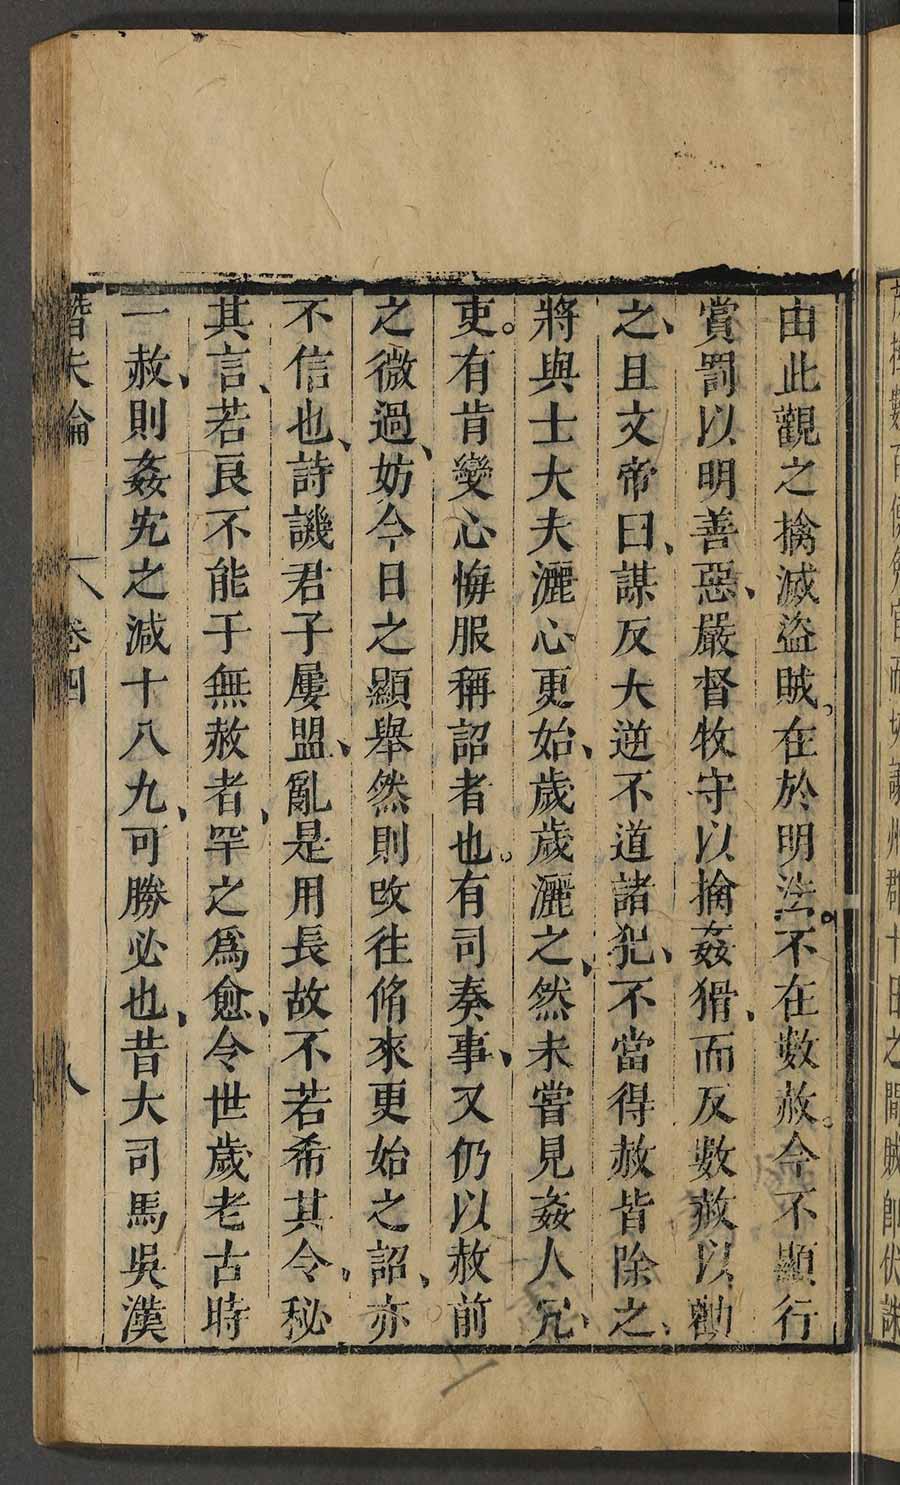 由此觀之擒滅盜賊在於明法不在數赦今不顯行
賞罰以明善惡嚴督牧守以擒姦猾而反數赦以勸
之且文帝曰謀反大逆不道諸犯不當得赦皆除之
將與士大夫灑心更始歲歲灑之然未嘗見姦人冗
吏有肯變心悔服稱詔者也有司奏事又仍以赦前
之微過妨今日之顯舉然則改往脩來更始之詔亦
不信也詩譏君子屢盟亂是用長故不若希其令秘
其言若良不能于無赦者罕之爲愈令世歲老古時
一赦則姦宄之減十八九可勝必也昔大司馬吳漢
潛夫論 卷四 八